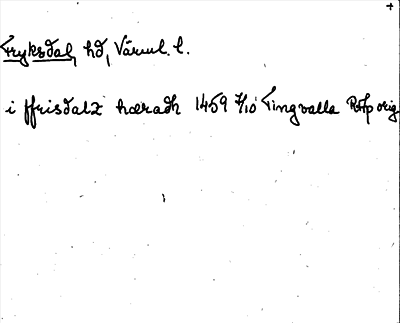 +
Fryksdal, hd, Värml. l.
i ffrisdalz hæradh 1459 7/10 Tingvalla RAp orig